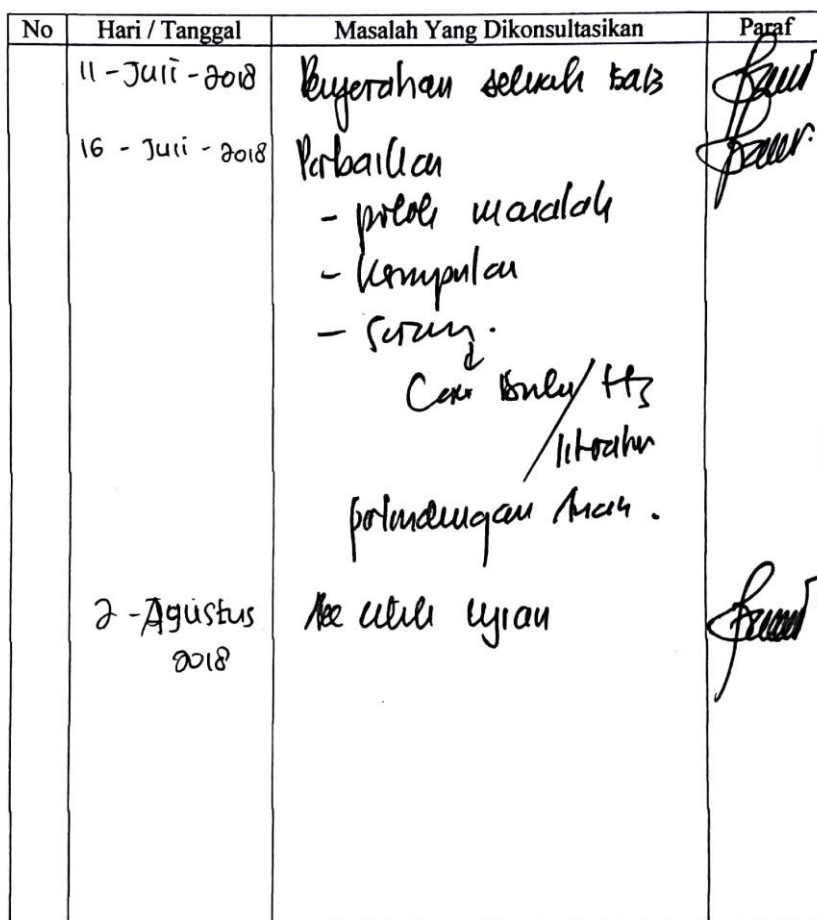 No Hari / Tanggal Masalah Yang Dikonsultasikan Paraf
11 - Juli - 2018 Penyerahan seluruh BAB
16 - Juli - 2018 Perbaikan
- pokok masalah
- Kesimpulan
- Saran.
Cari Buku /
literatur
perlindungan Anak.
2 - Agustus Acc untuk ujian
2018